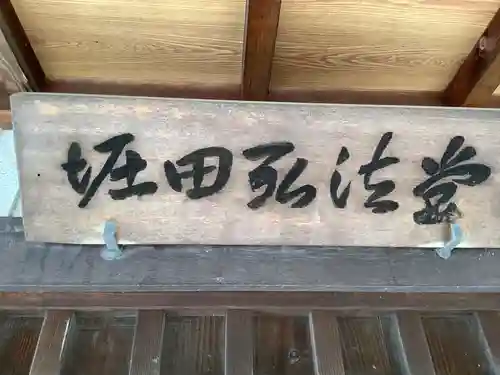 堀田弘法堂